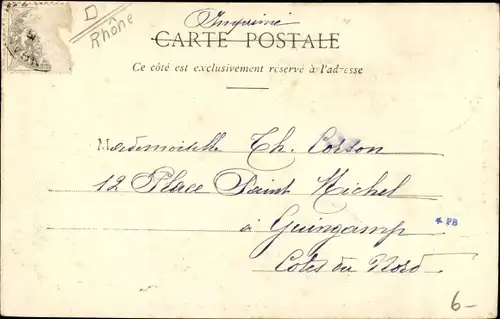 Imprimé
Rhône
CARTE POSTALE
Ce côté est exclusivement réservé à l'adresse
Mademoiselle Th. Corson
12 Place Saint Michel
à Guingamp
* PB
Côtes du Nord
6-